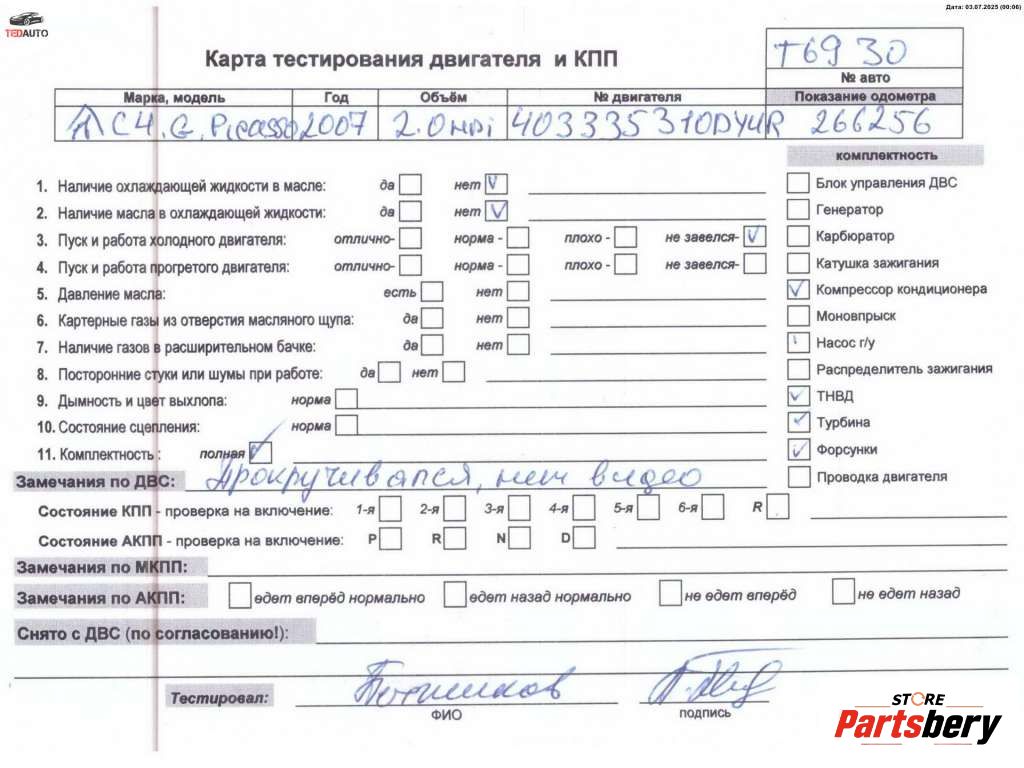 Дата: 03.07.2025 (00:06)
TEDAUTO
Карта тестирования двигателя и КПП
T6930
№ авто
Марка, модель Год Объём № двигателя Показание одометра
C4 G. Picasso 2007 2.0 HDi 266256
комплектность
1. Наличие охлаждающей жидкости в масле: да нет
Блок управления ДВС
2. Наличие масла в охлаждающей жидкости: да нет
Генератор
3. Пуск и работа холодного двигателя: отлично- норма - плохо - не завелся-
Карбюратор
4. Пуск и работа прогретого двигателя: отлично- норма - плохо - не завелся-
Катушка зажигания
5. Давление масла: есть нет
Компрессор кондиционера
6. Картерные газы из отверстия масляного щупа: да нет
Моновпрыск
7. Наличие газов в расширительном бачке: да нет
Насос г/у
8. Посторонние стуки или шумы при работе: да нет
Распределитель зажигания
9. Дымность и цвет выхлопа: норма
ТНВД
10. Состояние сцепления: норма
Турбина
11. Комплектность : полная
Форсунки
Замечания по ДВС: Прокручивался, нет видео
Проводка двигателя
Состояние КПП - проверка на включение: 1-я 2-я 3-я 4-я 5-я 6-я R
Состояние АКПП - проверка на включение: P R N D
Замечания по МКПП:
Замечания по АКПП: едет вперёд нормально едет назад нормально не едет вперёд не едет назад
Снято с ДВС (по согласованию!):
Тестировал:
ФИО подпись
STORE
Partsbery